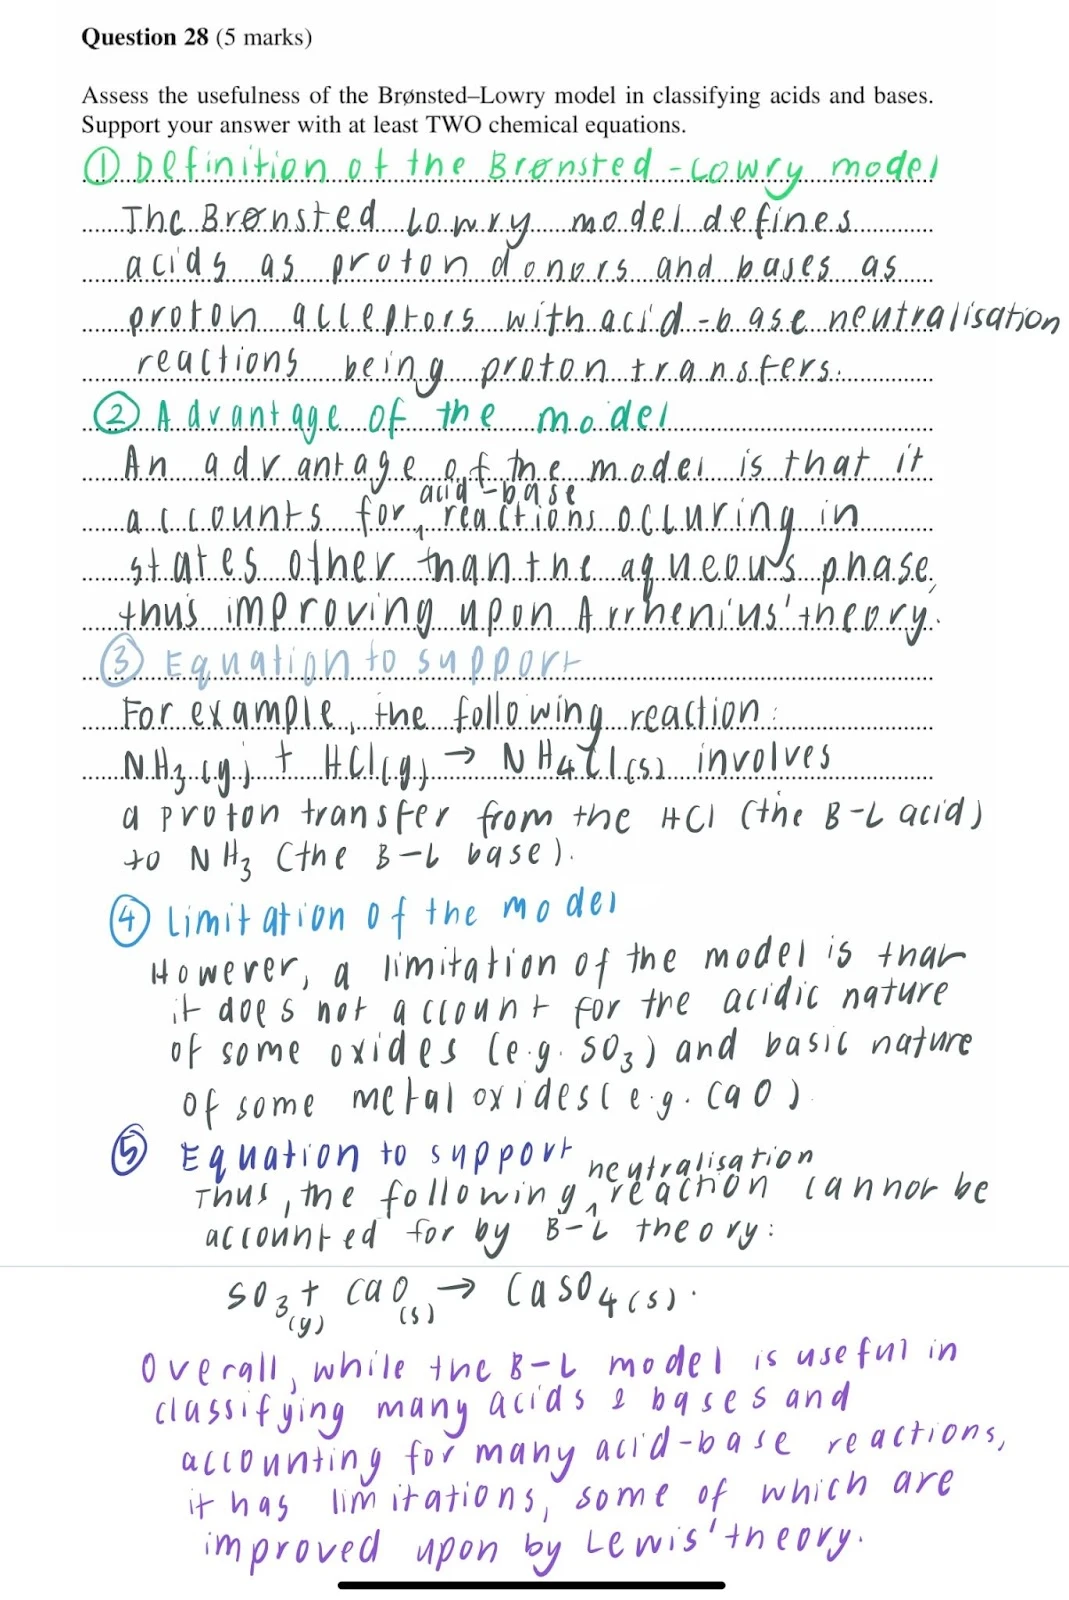 Question 28 (5 marks)
Assess the usefulness of the Brønsted–Lowry model in classifying acids and bases.
Support your answer with at least TWO chemical equations.
① Definition of the Brønsted-Lowry model
The Brønsted Lowry model defines
acids as proton donors and bases as
proton acceptors with acid-base neutralisation
reactions being proton transfers.
② Advantage of the model
An advantage of the model is that it
accounts for ^acid-base reactions occuring in
states other than the aqueous phase,
thus improving upon Arrhenius' theory.
③ Equation to support
For example, the following reaction:
NH₃(g) + HCl(g) → NH₄Cl(s) involves
a proton transfer from the HCl (the B-L acid)
to NH₃ (the B-L base).
④ Limitation of the model
However, a limitation of the model is that
it does not account for the acidic nature
of some oxides (e.g. SO₃) and basic nature
of some metal oxides (e.g. CaO)
⑤ Equation to support
Thus, the following ^neutralisation reaction cannot be
accounted for by B-L theory:
SO₃(g) + CaO(s) → CaSO₄(s).
Overall, while the B-L model is useful in
classifying many acids & bases and
accounting for many acid-base reactions,
it has limitations, some of which are
improved upon by Lewis' theory.